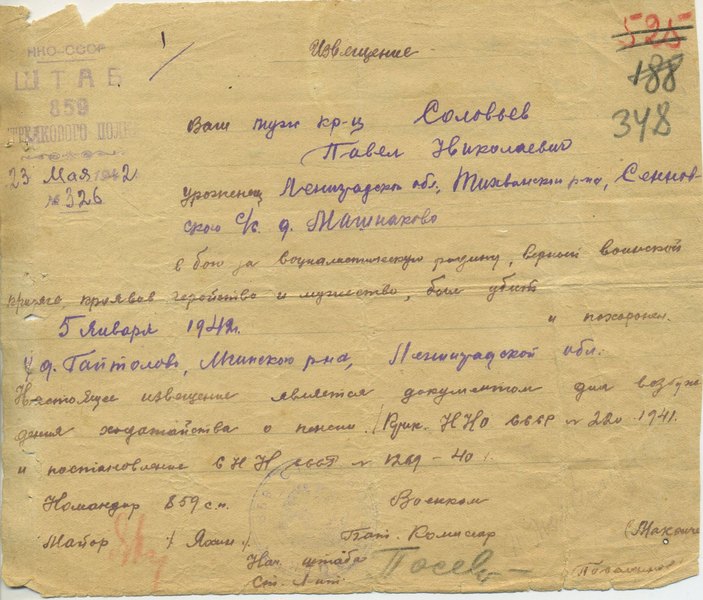 НКО-СССР
ШТАБ
859
СТРЕЛКОВОГО ПОЛКА
23 Мая 1942
№ 326
Извещение
525
188
348
Ваш муж кр-ц Соловьев
Павел Николаевич
уроженец Ленинградской обл., Тихвинский р-на, Сеннов-
ского с/с. д. Машнаково
в бою за социалистическую родину, верный воинской
присяге проявив геройство и мужество, был убит
5 Января 1942г. и похоронен
д. Гайтолово, Мгинского р-на, Ленинградской обл.
Настоящее извещение является документом для возбуж-
дения ходатайства о пенсии. (Прик. НКО СССР № 220 1941.
и постановление СНК СССР № 1269-40 г.
Командир 859 с.п. Военком
Майор Бат. Комиссар
Нач. штаба
Ст. Л-нт